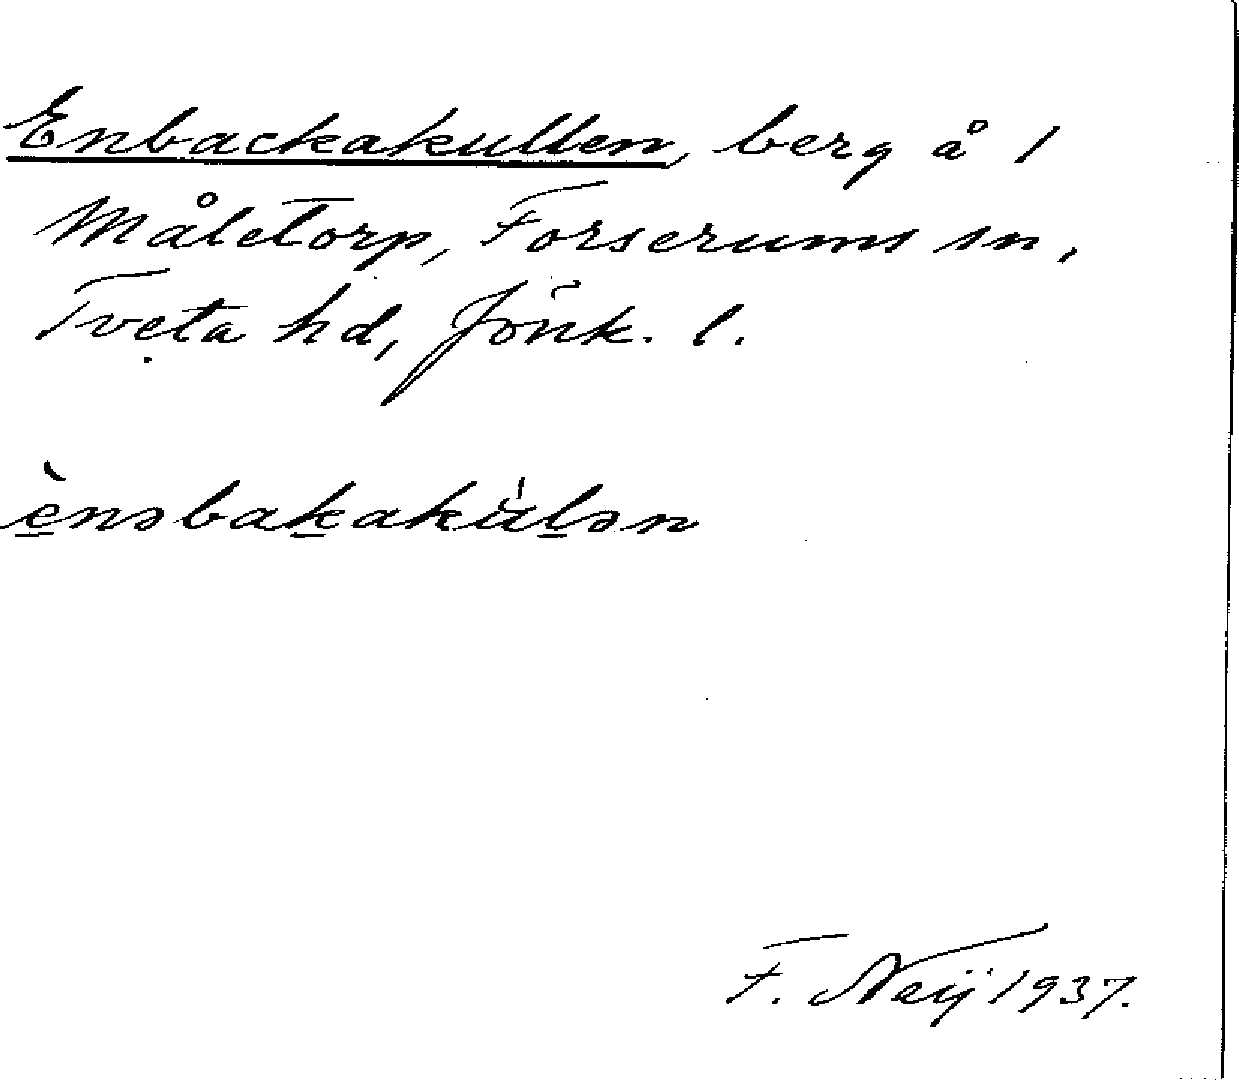 Enbackakullen, berg å 1
Måletorp, Forserums sn,
Tveta hd, Jönk. l.
è̱nəbaḵakùḻən
F. Neij 1937.